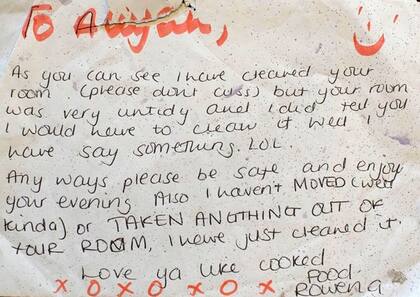 To Aliyah,
As you can see I have cleaned your
room. (please dont cuss) but your room
was very untidy and I did tell you
I would have to clean it. Well I
have say something. LOL.
Any ways please be safe and enjoy
your evening. Also I haven't MOVED (well
kinda) or TAKEN ANGTHING OUT OF
YOUR ROOM, I have just cleaned it.
Love ya like cooked
food
x o x o x o x Rowena